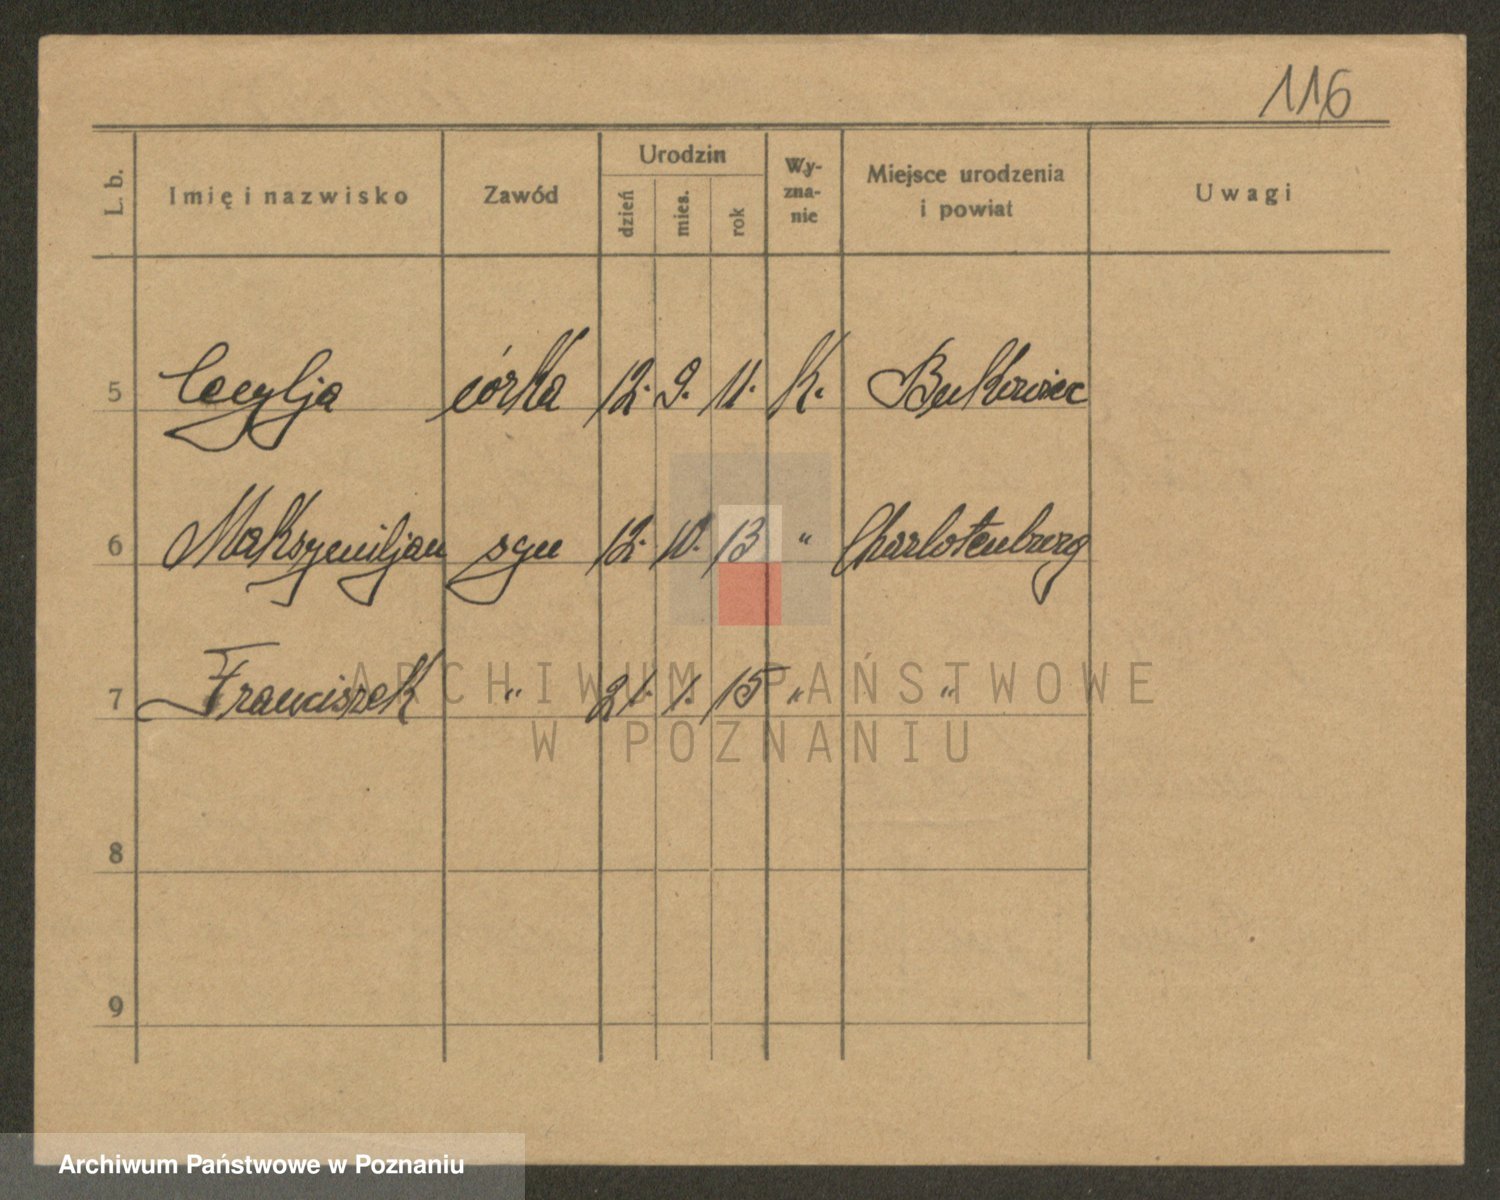 116
L. b. Imię i nazwisko Zawód Urodzin dzień mies. rok Wy-zna-nie Miejsce urodzenia i powiat Uwagi
5 Cecylja córka 12. 9. 11. K. Bukowiec
6 Maksymiljan syn 12. 10. 13 " Charlotenburg
7 Franciszek " 21. 1. 15 " "
8
9
ARCHIWUM PAŃSTWOWE
W POZNANIU
Archiwum Państwowe w Poznaniu